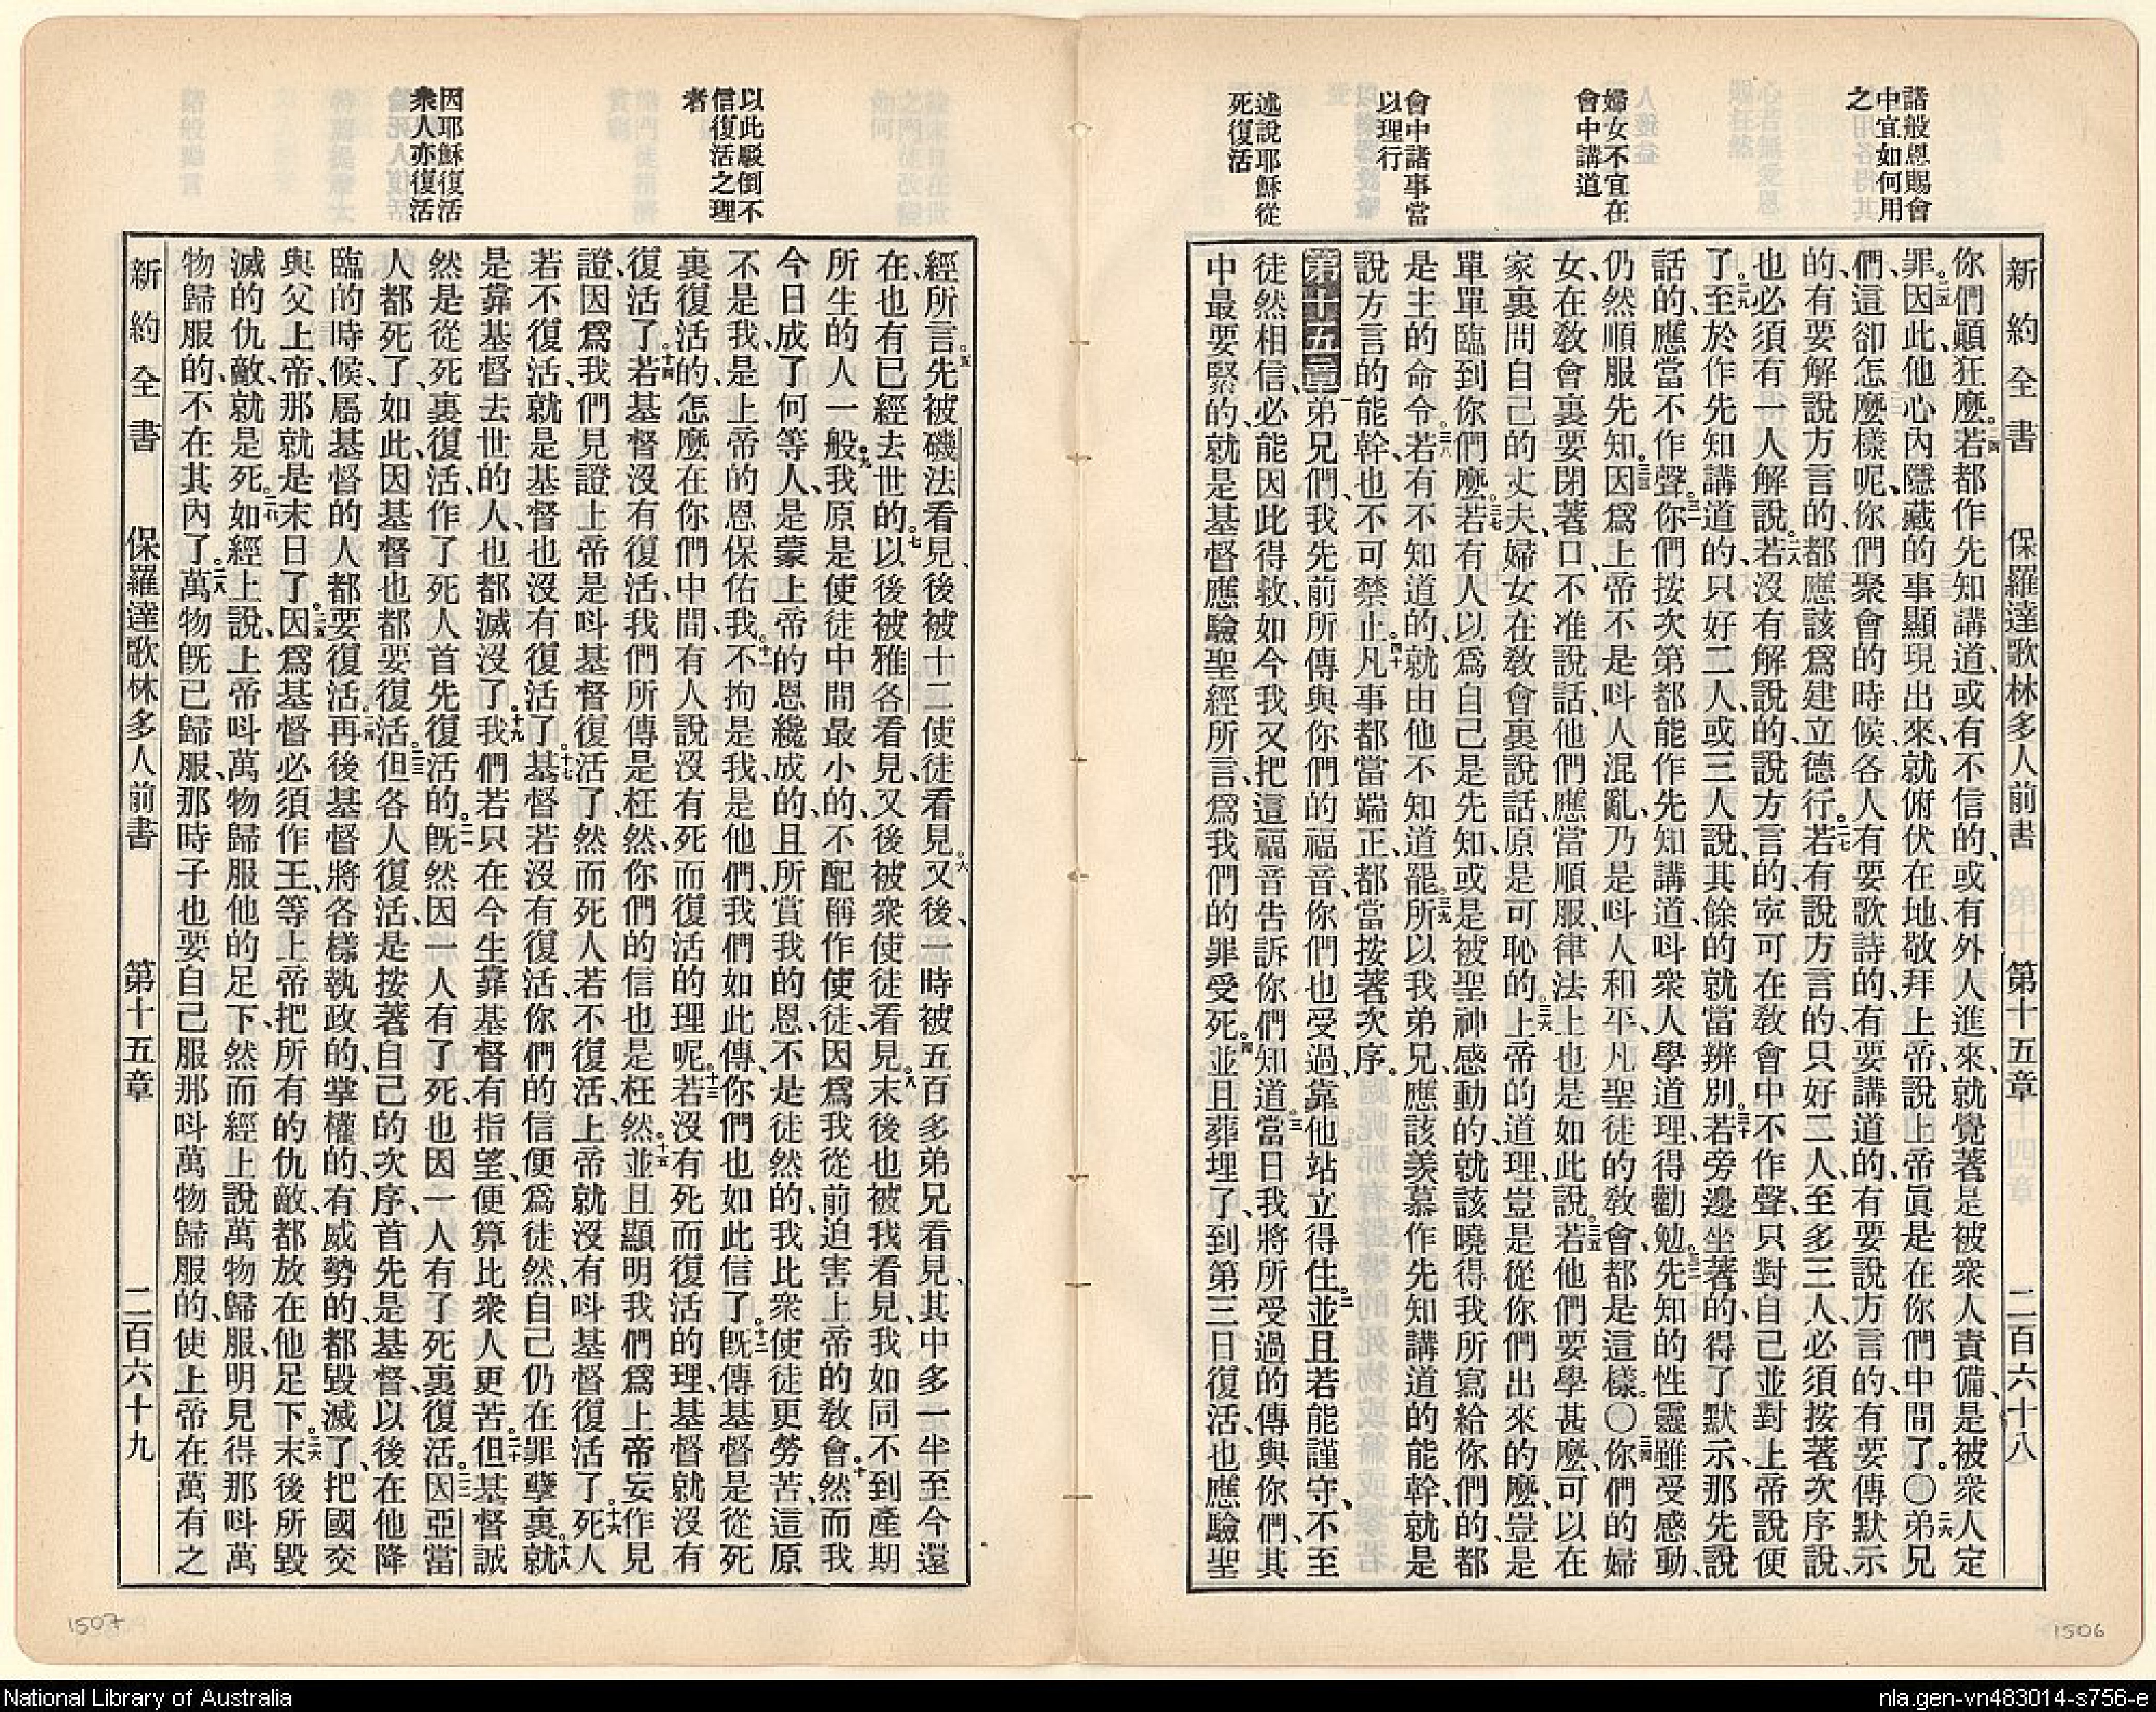 諸般恩賜會
中宜如何用
之
婦女不宜在
會中講道
會中諸事當
以理行
述說耶穌從
死復活
新約全書 保羅達歌林多人前書 第十五章 二百六十八
你們顚狂麼。二四若都作先知講道、或有不信的、或有外人進來、就覺著是被衆人責備、是被衆人定
罪。二五因此、他心內隱藏的事顯現出來、就俯伏在地、敬拜上帝、說上帝眞是在你們中間了。〇二六弟兄
們、這卻怎麼樣呢、你們聚會的時候、各人有要歌詩的、有要講道的、有要說方言的、有要傳默示
的、有要解說方言的、都應該爲建立德行。二七若有說方言的、只好二人、至多三人、必須按著次序說、
也必須有一人解說。二八若沒有解說的、說方言的、寧可在敎會中不作聲、只對自己並對上帝說便
了。二九至於作先知講道的、只好二人或三人說、其餘的就當辨別。三十若旁邊坐著的、得了默示、那先說
話的、應當不作聲。三一你們按次第都能作先知講道、呌衆人學道理、得勸勉。三二先知的性靈雖受感動、
仍然順服先知。三三因爲上帝不是呌人混亂、乃是呌人和平、凡聖徒的敎會、都是這樣。〇三四你們的婦
女、在敎會裏要閉著口、不准說話、他們應當順服、律法上也是如此說。三五若他們要學甚麼、可以在
家裏問自己的丈夫、婦女在敎會裏說話、原是可恥的。三六上帝的道理、豈是從你們出來的麼、豈是
單單臨到你們麼。三七若有人以爲自己是先知、或是被聖神感動的、就該曉得我所寫給你們的、都
是主的命令。三八若有不知道的、就由他不知道罷。三九所以我弟兄、應該羨慕作先知講道的能幹、就是
說方言的能幹、也不可禁止。四十凡事都當端正、都當按著次序。
第十五章一弟兄們、我先前所傳與你們的福音、你們也受過、靠他站立得住。二並且若能謹守、不至
徒然相信、必能因此得救、如今我又把這福音告訴你們知道。三當日我將所受過的傳與你們、其
中最要緊的、就是基督應驗聖經所言、爲我們的罪受死。四並且葬埋了、到第三日復活、也應驗聖
以此駁倒不
信復活之理
者
因耶穌復活
衆人亦復活
經所言。五先被磯法看見、後被十二使徒看見。六又後、一時被五百多弟兄看見、其中多一半至今還
在、也有已經去世的。七以後被雅各看見、又後被衆使徒看見。八末後也被我看見、我如同不到產期
所生的人一般。九我原是使徒中間最小的、不配稱作使徒、因爲我從前迫害上帝的敎會。十然而我
今日成了何等人、是蒙上帝的恩纔成的、且所賞我的恩、不是徒然的、我比衆使徒更勞苦、這原
不是我、是上帝的恩保佑我。十一不拘是我、是他們、我們如此傳、你們也如此信了。十二旣傳基督是從死
裏復活的、怎麼在你們中間、有人說沒有死而復活的理呢。十三若沒有死而復活的理、基督就沒有
復活了。十四若基督沒有復活、我們所傳是枉然、你們的信也是枉然。十五並且顯明我們爲上帝妄作見
證、因爲我們見證上帝是呌基督復活了、然而死人若不復活、上帝就沒有呌基督復活了。十六死人
若不復活、就是基督也沒有復活了。十七基督若沒有復活、你們的信便爲徒然、自己仍在罪孽裏。十八就
是靠基督去世的人、也都滅沒了。十九我們若只在今生靠基督有指望、便算比衆人更苦。二十但基督誠
然是從死裏復活、作了死人首先復活的。二一旣然因一人有了死、也因一人有了死裏復活。二二因亞當
人都死了、如此、因基督也都要復活。二三但各人復活、是按著自己的次序、首先是基督、以後在他降
臨的時候、屬基督的人都要復活。二四再後基督將各樣執政的、掌權的、有威勢的、都毀滅了、把國交
與父上帝、那就是末日了。二五因爲基督必須作王、等上帝把所有的仇敵、都放在他足下。二六末後所毀
滅的仇敵、就是死。二七如經上說、上帝呌萬物歸服他的足下、然而經上說萬物歸服、明見得那呌萬
物歸服的、不在其內了。二八萬物旣已歸服、那時子也要自己服那呌萬物歸服的、使上帝在萬有之
新約全書 保羅達歌林多人前書 第十五章 二百六十九
1507
1506
National Library of Australia
nla.gen-vn483014-s756-e